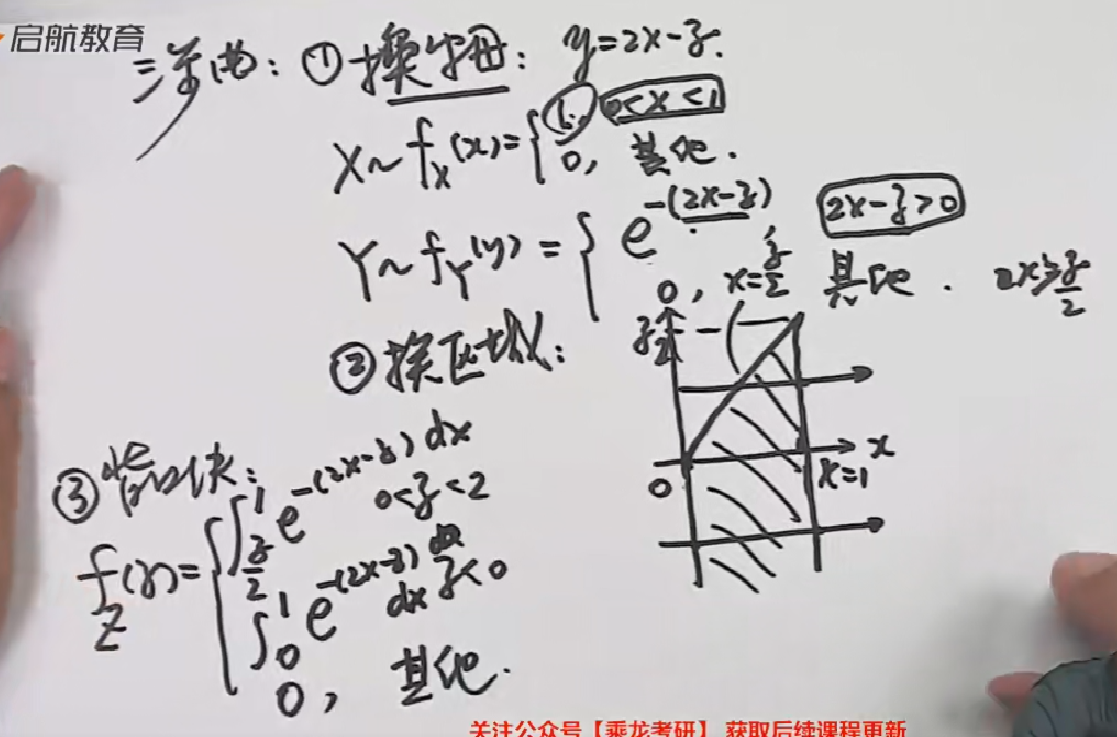 启航教育
三步曲: ①换字母: y=2x-z.
X~f_X(x)={1, 0<x<1
0, 其他.
Y~f_Y(y)={e^{-(2x-z)} 2x-z>0
0, 其他.
x=z/2
2x>z/2
②换区域:
z 2
0
x
x=1
③
f_Z(z)={∫_{z/2}^1 e^{-(2x-z)} dx 0<z<2
∫_0^1 e^{-(2x-z)} dx z<0
0, 其他.
关注公众号【乘龙考研】 获取后续课程更新